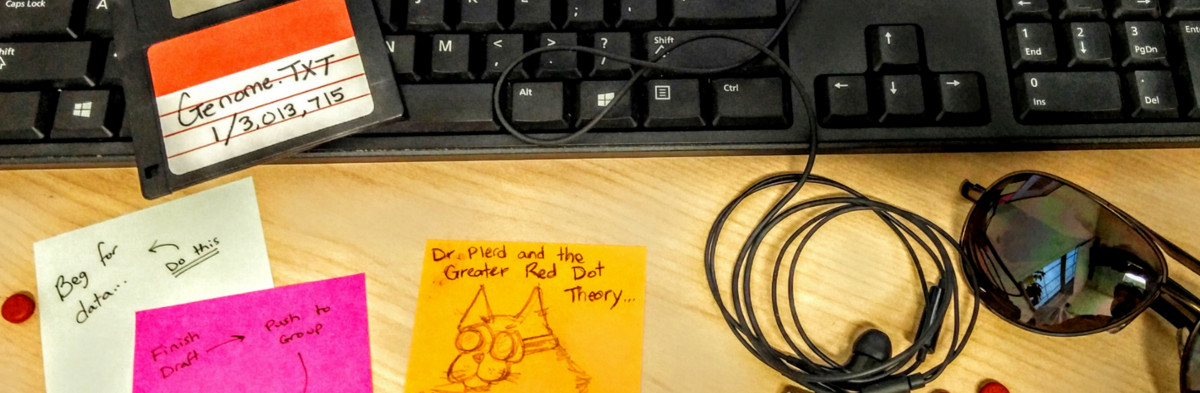 Caps Lock
A
Shift
N
M
<
,
>
.
?
/
Shift
Alt
Ctrl
1
End
2
3
PgDn
0
Ins
.
Del
Enter
Genome.TXT
1/3,013,715
Beg for
data...
Do this
Finish
Draft
Push to
Group
Dr. Plerd and the
Greater Red Dot
Theory...